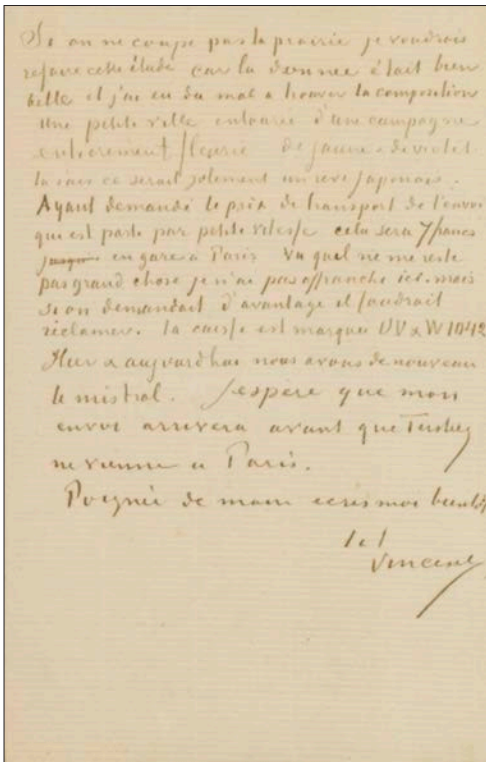 Si on ne coupe pas la prairie je voudrais
refaire cette étude car la donnée était bien
belle et j'ai eu du mal a trouver la composition
une petite ville entourée d'une campagne
entierement fleurie de jaune & de violet
ce serait joliment un reve japonais.
Ayant demandé le prix de transport de l'envoi
qui est parti par petite vitesse cela sera 7 francs
en gare à Paris. Vu qu'il ne me reste
pas grand chose je n'ai pas affranchi ici. mais
si on demandait d'avantage il faudrait
réclamer. la caisse est marquée UV & W 1042
Hier & aujourd'hui nous avons de nouveau
le mistral. J'espère que mon
envoi arrivera avant que Tersteeg
ne vienne a Paris.
Poignée de main ecris moi bientôt
t. à t.
Vincent